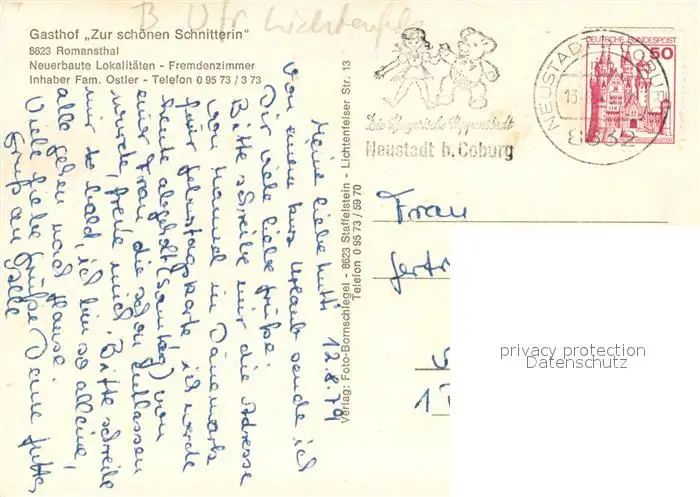 B Ufr Lichtenfels
Gasthof „Zur schönen Schnitterin"
8623 Romansthal
Neuerbaute Lokalitäten - Fremdenzimmer
Inhaber Fam. Ostler - Telefon 0 95 73 / 3 73
Die Bayerische Puppenstadt
Neustadt b. Coburg
NEUSTADT COBURG
8632
DEUTSCHE BUNDESPOST
50
Verlag: Foto-Bornschlegel - 8623 Staffelstein - Lichtenfelser Str. 13
Telefon 0 95 73 / 59 70
Meine liebe Mutti 12.8.79
Von einem kurz Urlaub sende ich
Dir viele liebe Grüße.
Bitte schreibe mir die Adresse
von in Dänemark
für Geburtstagskarte ich werde
heute abgeholt (Samstag) von
einer Frau die schon entlassen
wurde, freue mich. Bitte schreibe
mir so bald, ich bin so alleine,
alle gehen nach Hause.
Viele liebe Grüße Deine Jutta,
Gruß an
Frau
Gertr
privacy protection
Datenschutz